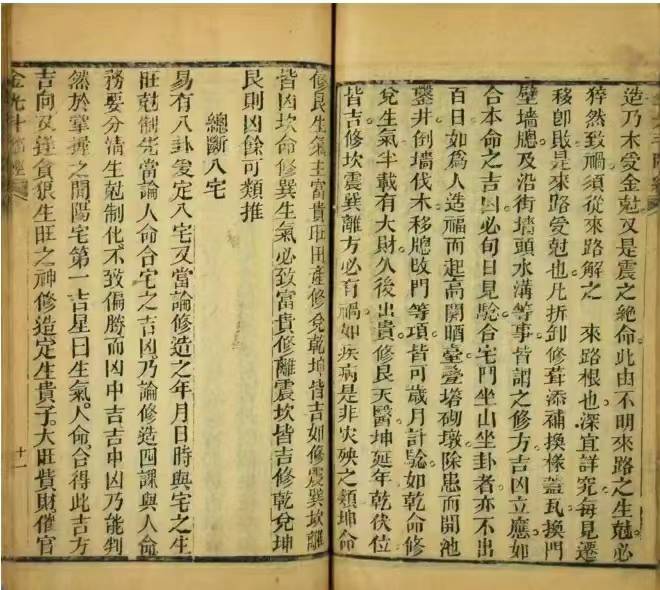 造乃木受金尅又是震之絶命此由不明來路之生尅必
猝然致禍須從來路解之　來路根也深宜詳究每見遷
移卽敗是來路受尅也凡折卸修葺添補換樣蓋瓦換門
壁墻牕及沿街墻頭水溝等事皆謂之修方吉凶立應如
合本命之吉凶必旬日見驗合宅門坐山坐卦者亦不出
百日如爲人造福而起高閣晒臺疊塔砌墩除患而開池
鑿井倒墻伐木移牕改門等項皆可歲月計驗如乾命修
兌生氣半載有大財久後出貴修艮天醫坤延年乾伏位
皆吉修坎震巽離方必有禍如疾病是非灾殃之類坤命
修艮生氣主富貴旺田產修兌乾坤皆吉如修震巽坎離
皆凶坎命修巽生氣必致富貴修離震坎皆吉修乾兌坤
艮則凶餘可類推
總斷八宅
易有八卦爰定八宅又當論修造之年月日時與宅之生
旺尅制先當論人命合宅之吉凶乃論修造四課與人命
務要分清生尅制化不致偏勝而凶中吉吉中凶乃能判
然於掌握之間陽宅第一吉星曰生氣人命合得此吉方
吉向又逢貪狼生旺之神修造定生貴子大旺貲財催官
金光斗臨經
十一